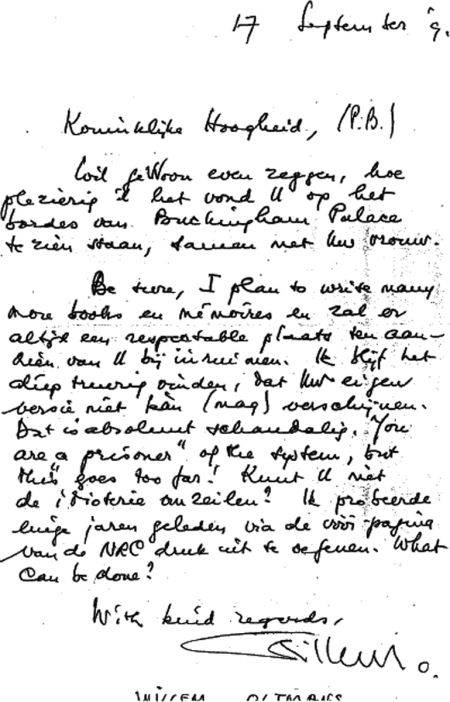 17 September '9.
Koninklijke Hoogheid, (P.B.)
Wil gewoon even zeggen, hoe
plezierig ik het vond U op het
bordes van Buckingham Palace
te zien staan, samen met Uw vrouw.
Be sure, I plan to write many
more books en mémoires en zal er
altijd een respectable plaats ten aan-
zien van U bij inruimen. Ik blijf het
diep treurig vinden, dat Uw eigen
versie niet kàn (mag) verschijnen.
Dat is absoluut schandalig. You
are a "prisoner" of the system, but
this goes too far! Kunt U niet
de idioterie omzeilen? Ik probeerde
enige jaren geleden via de voorpagina
van de NRC druk uit te oefenen. What
can be done?
With kind regards,
Willem O.
WILLEM OLTMANS